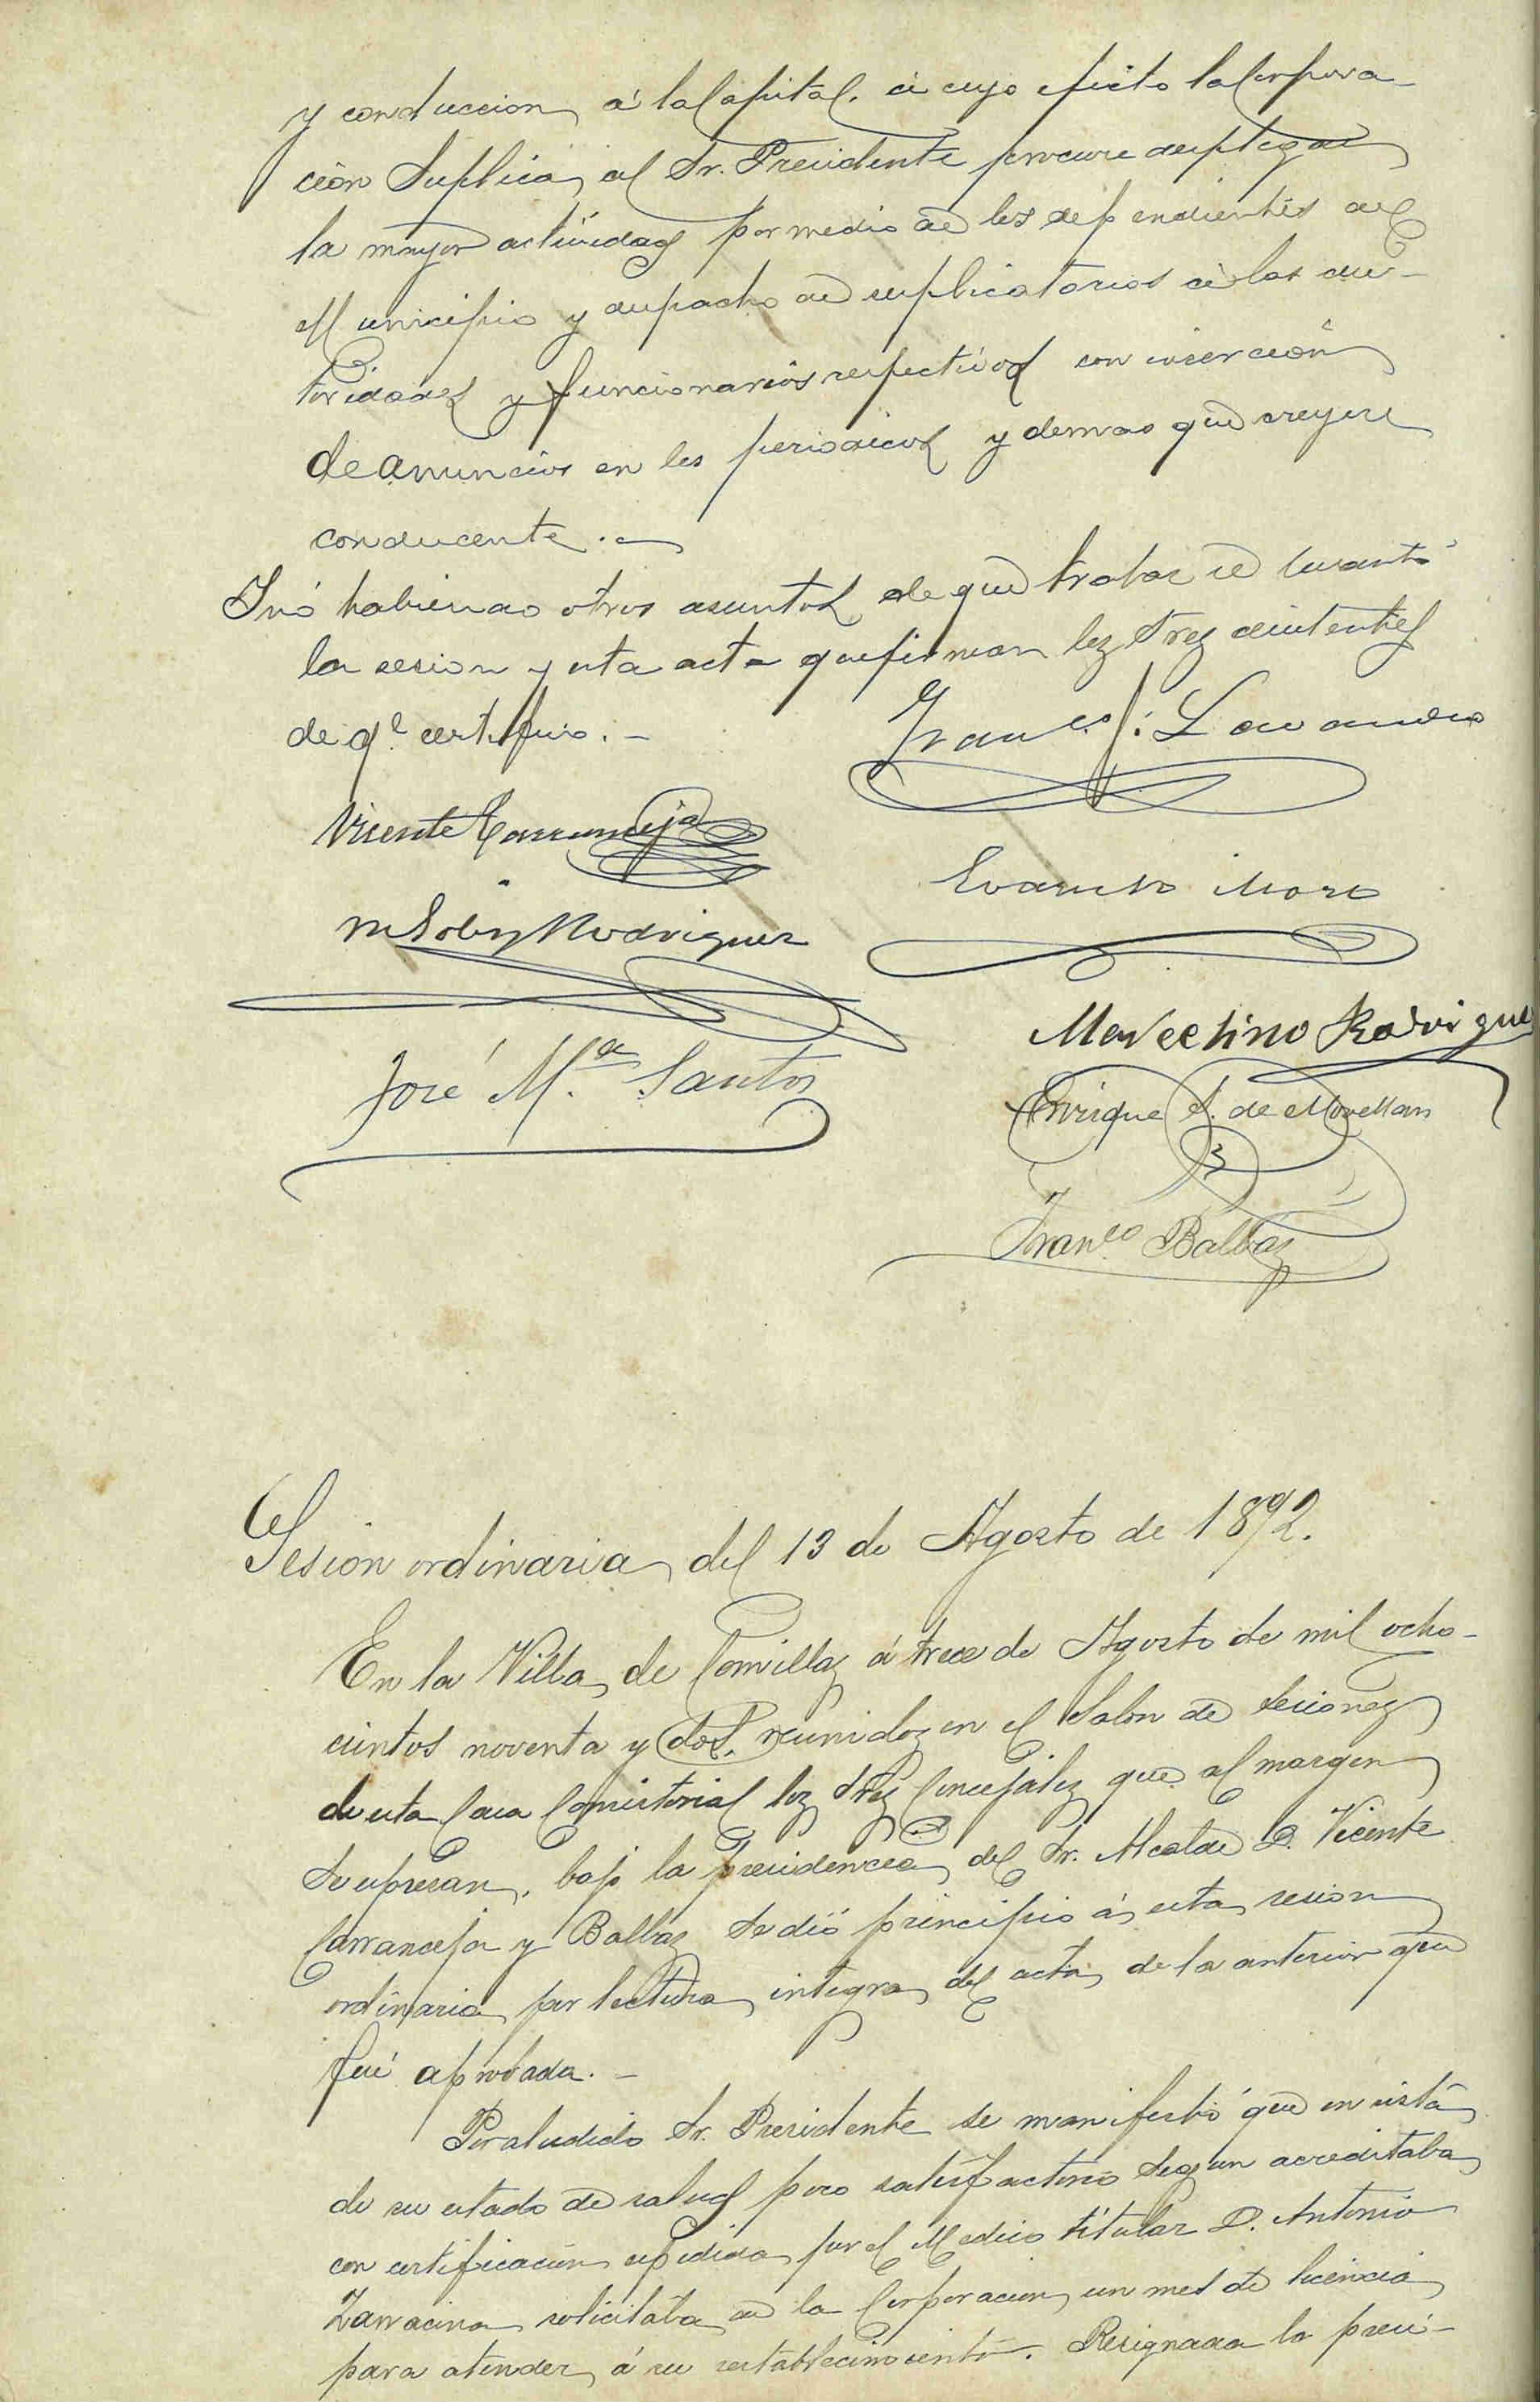 y conduccion á la Capital. á cuyo efecto la Corpora-
ción Suplica al Sr. Presidente procure desplegar
la mayor actividad por medio de los dependientes del
Municipio y despacho de suplicatorios á las au-
toridades y funcionarios respectivos con inserción
de anuncios en los periodicos y demas que creyere
conducente. -
Y nó habiendo otros asuntos de que tratar se levantó
la sesion y esta acta que firman los Sres asistentes
de q.e certifico. -
Franco. S.
Vicente Carranceja
Evaristo Mora
M Soby Rodriguez
Marcelino Rodriguez
José M.a Santos
Enrique S. de Movellan
Franco Balbás
Sesion ordinaria del 13 de Agosto de 1892.
En la Villa de Comillas á trece de Agosto de mil ocho-
cientos noventa y dos. reunidos en el Salon de sesiones
de esta Casa Consistorial los Sres Concejales que al margen
Se expresan, bajo la presidencia del Sr. Alcalde D. Vicente
Carranceja y Balbas Se dió principio á esta sesion
ordinaria por lectura integra del acta de la anterior que
fué aprobada. -
Por aludido Sr. Presidente se manifestó que en vista
de su estado de salud poco satisfactorio Segun acreditaba
con certificacion expedida por el Medico titular D. Antonio
Zarracina solicitaba de la Corporacion un mes de licencia
para atender á su restablecimiento. Resignada la presi-